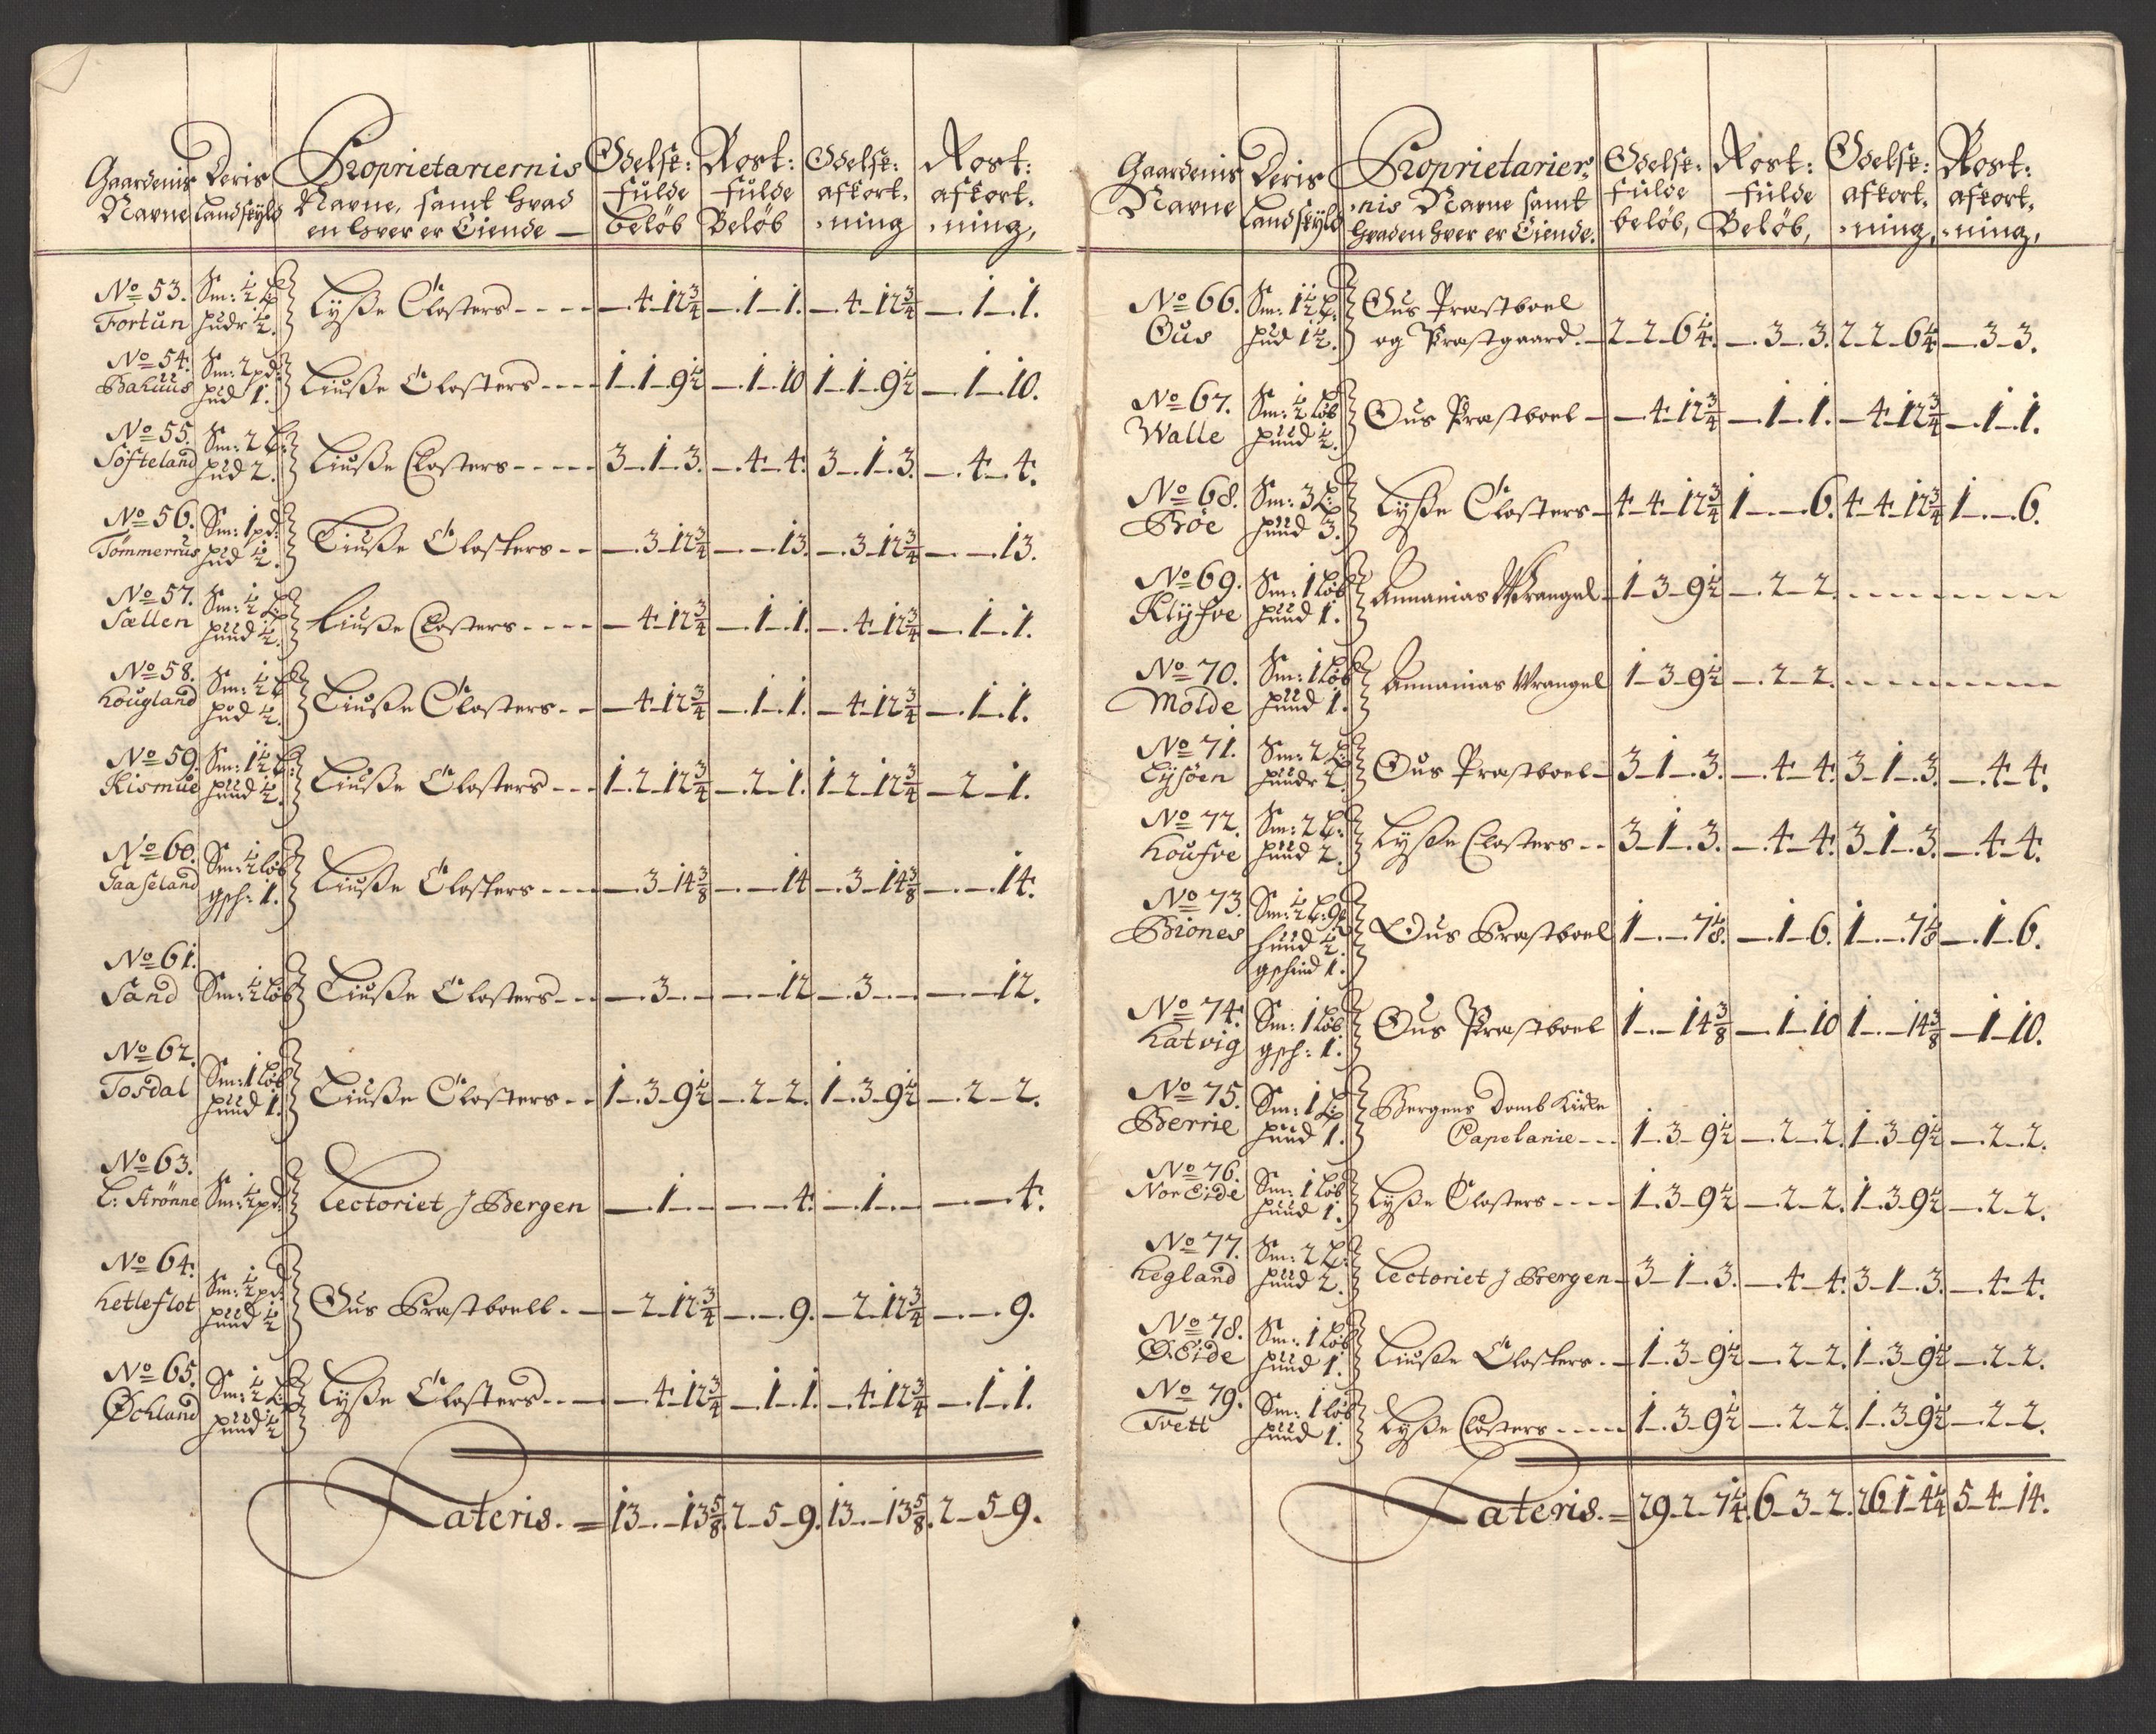 Gaardenis Navne | Deris Landskyld | Proprietariernis Navne, samt hvad en hver er Eiende | Odelsk: fulde beløb | Rost: fulde Beløb | Odelsk: afkort-ning | Rost: afkort-ning,
No 53. Fortun | Sm: ½ L hudr ½. | Lysse Closters | 4-12¾ | 1-1. | 4-12¾ | 1-1.
No 54. Bahuus | Sm: 2 pd: hud 1. | Liusse Closters | 1-1-9½ | 1-10 | 1-1-9½ | 1-10.
No 55. Søfteland | Sm: 2 L: hud 2. | Liusse Closters | 3-1-3. | 4-4. | 3-1-3. | 4-4.
No 56. Tømmernus | Sm: 1 pd: hud ½. | Liusse Closters | 3-12¾ | 13. | 3-12¾ | 13.
No 57. Sællen | Sm: ½ L: huud ½. | Liusse Closters | 4-12¾ | 1-1. | 4-12¾ | 1-1.
No 58. Hougland | Sm: ½ L hud ½. | Liusse Closters | 4-12¾ | 1-1. | 4-12¾ | 1-1.
No 59. Rismue | Sm: 1½ L: huud ½. | Liusse Closters | 1-2-12¾ | 2-1. | 1-2-12¾ | 2-1.
No 60. Gaaseland | Sm: ½ løb gsh: 1. | Liusse Closters | 3-14⅜ | 14 | 3-14⅜ | 14.
No 61. Sand | Sm: ½ løb | Liusse Closters | 3 | 12 | 3 | 12.
No 62. Tosdal | Sm: 1 løb huud 1. | Liusse Closters | 1-3-9½ | 2-2. | 1-3-9½ | 2-2.
No 63. L: Strønne | Sm: ½ pd: | Lectoriet J Bergen | 1 | 4. | 1 | 4.
No 64. Hetleflot | Sm: ½ pd: huud ½ | Ous Præstboell | 2-12¾ | 9. | 2-12¾ | 9.
No 65. Øchland | Sm: ½ L: huud ½ | Lysse Closters | 4-12¾ | 1-1. | 4-12¾ | 1-1.
Lateris. = 13-13⅝. | 2-5-9. | 13-13⅝. | 2-5-9.
Gaardenis Navne | Deris Landskyld | Proprietarier-nis Navne samt hvad en hver er Eiende. | Odelsk: fulde beløb, | Rost: fulde Beløb, | Odelsk: afkort-ning, | Rost: afkort-ning,
No 66. Ous | Sm: 1½ L: hud 1½. | Ous Præstboel og Præstgaard. | 2-2-6¼. | 3-3. | 2-2-6¼. | 3-3.
No 67. Walle | Sm: ½ løb huud ½. | Ous Præstboel | 4-12¾ | 1-1. | 4-12¾ | 1-1.
No 68. Brøe | Sm: 3 L: huud 3. | Lysse Closters | 4-4-12¾ | 1-6. | 4-4-12¾ | 1-6.
No 69. Klyfve | Sm: 1 løb huud 1. | Annanias Wrangel | 1-3-9½ | 2-2.
No 70. Molde | Sm: 1 løb huud 1. | Annanias Wrangel | 1-3-9½ | 2-2.
No 71. Lysøen | Sm: 2 L: huudr 2. | Ous Præstboel | 3-1-3. | 4-4. | 3-1-3. | 4-4.
No 72. Houfve | Sm: 2 L: huud 2. | Lysse Closters | 3-1-3. | 4-4. | 3-1-3. | 4-4.
No 73. Biønes | Sm: ½ L: huud ½. gshind 1. | Ous Præstboel | 1-7⅛. | 1-6. | 1-7⅛ | 1-6.
No 74. Hatvig | Sm: 1 løb. gsh: 1. | Ous Præstboel | 1-14⅜ | 1-10 | 1-14⅜ | 1-10.
No 75. Berrie | Sm: 1 L: huud 1. | Bergens Domb Kirke Capelanie | 1-3-9½ | 2-2. | 1-3-9½ | 2-2.
No 76. Nor Eide | Sm: 1 løb huud 1. | Lysse Closters | 1-3-9½ | 2-2. | 1-3-9½ | 2-2.
No 77. Hegland | Sm: 2 L: huud 2. | Lectoriet J Bergen | 3-1-3. | 4-4. | 3-1-3. | 4-4.
No 78. Ø: Eide | Sm: 1 løb huud 1. | Liusse Closters | 1-3-9½ | 2-2. | 1-3-9½ | 2-2.
No 79. Tvett | Sm: 1 løb huud 1. | Lysse Closters | 1-3-9½ | 2-2. | 1-3-9½ | 2-2.
Lateris. = 29-2-7¼. | 6-3-2. | 26-1-4¼ | 5-4-14.